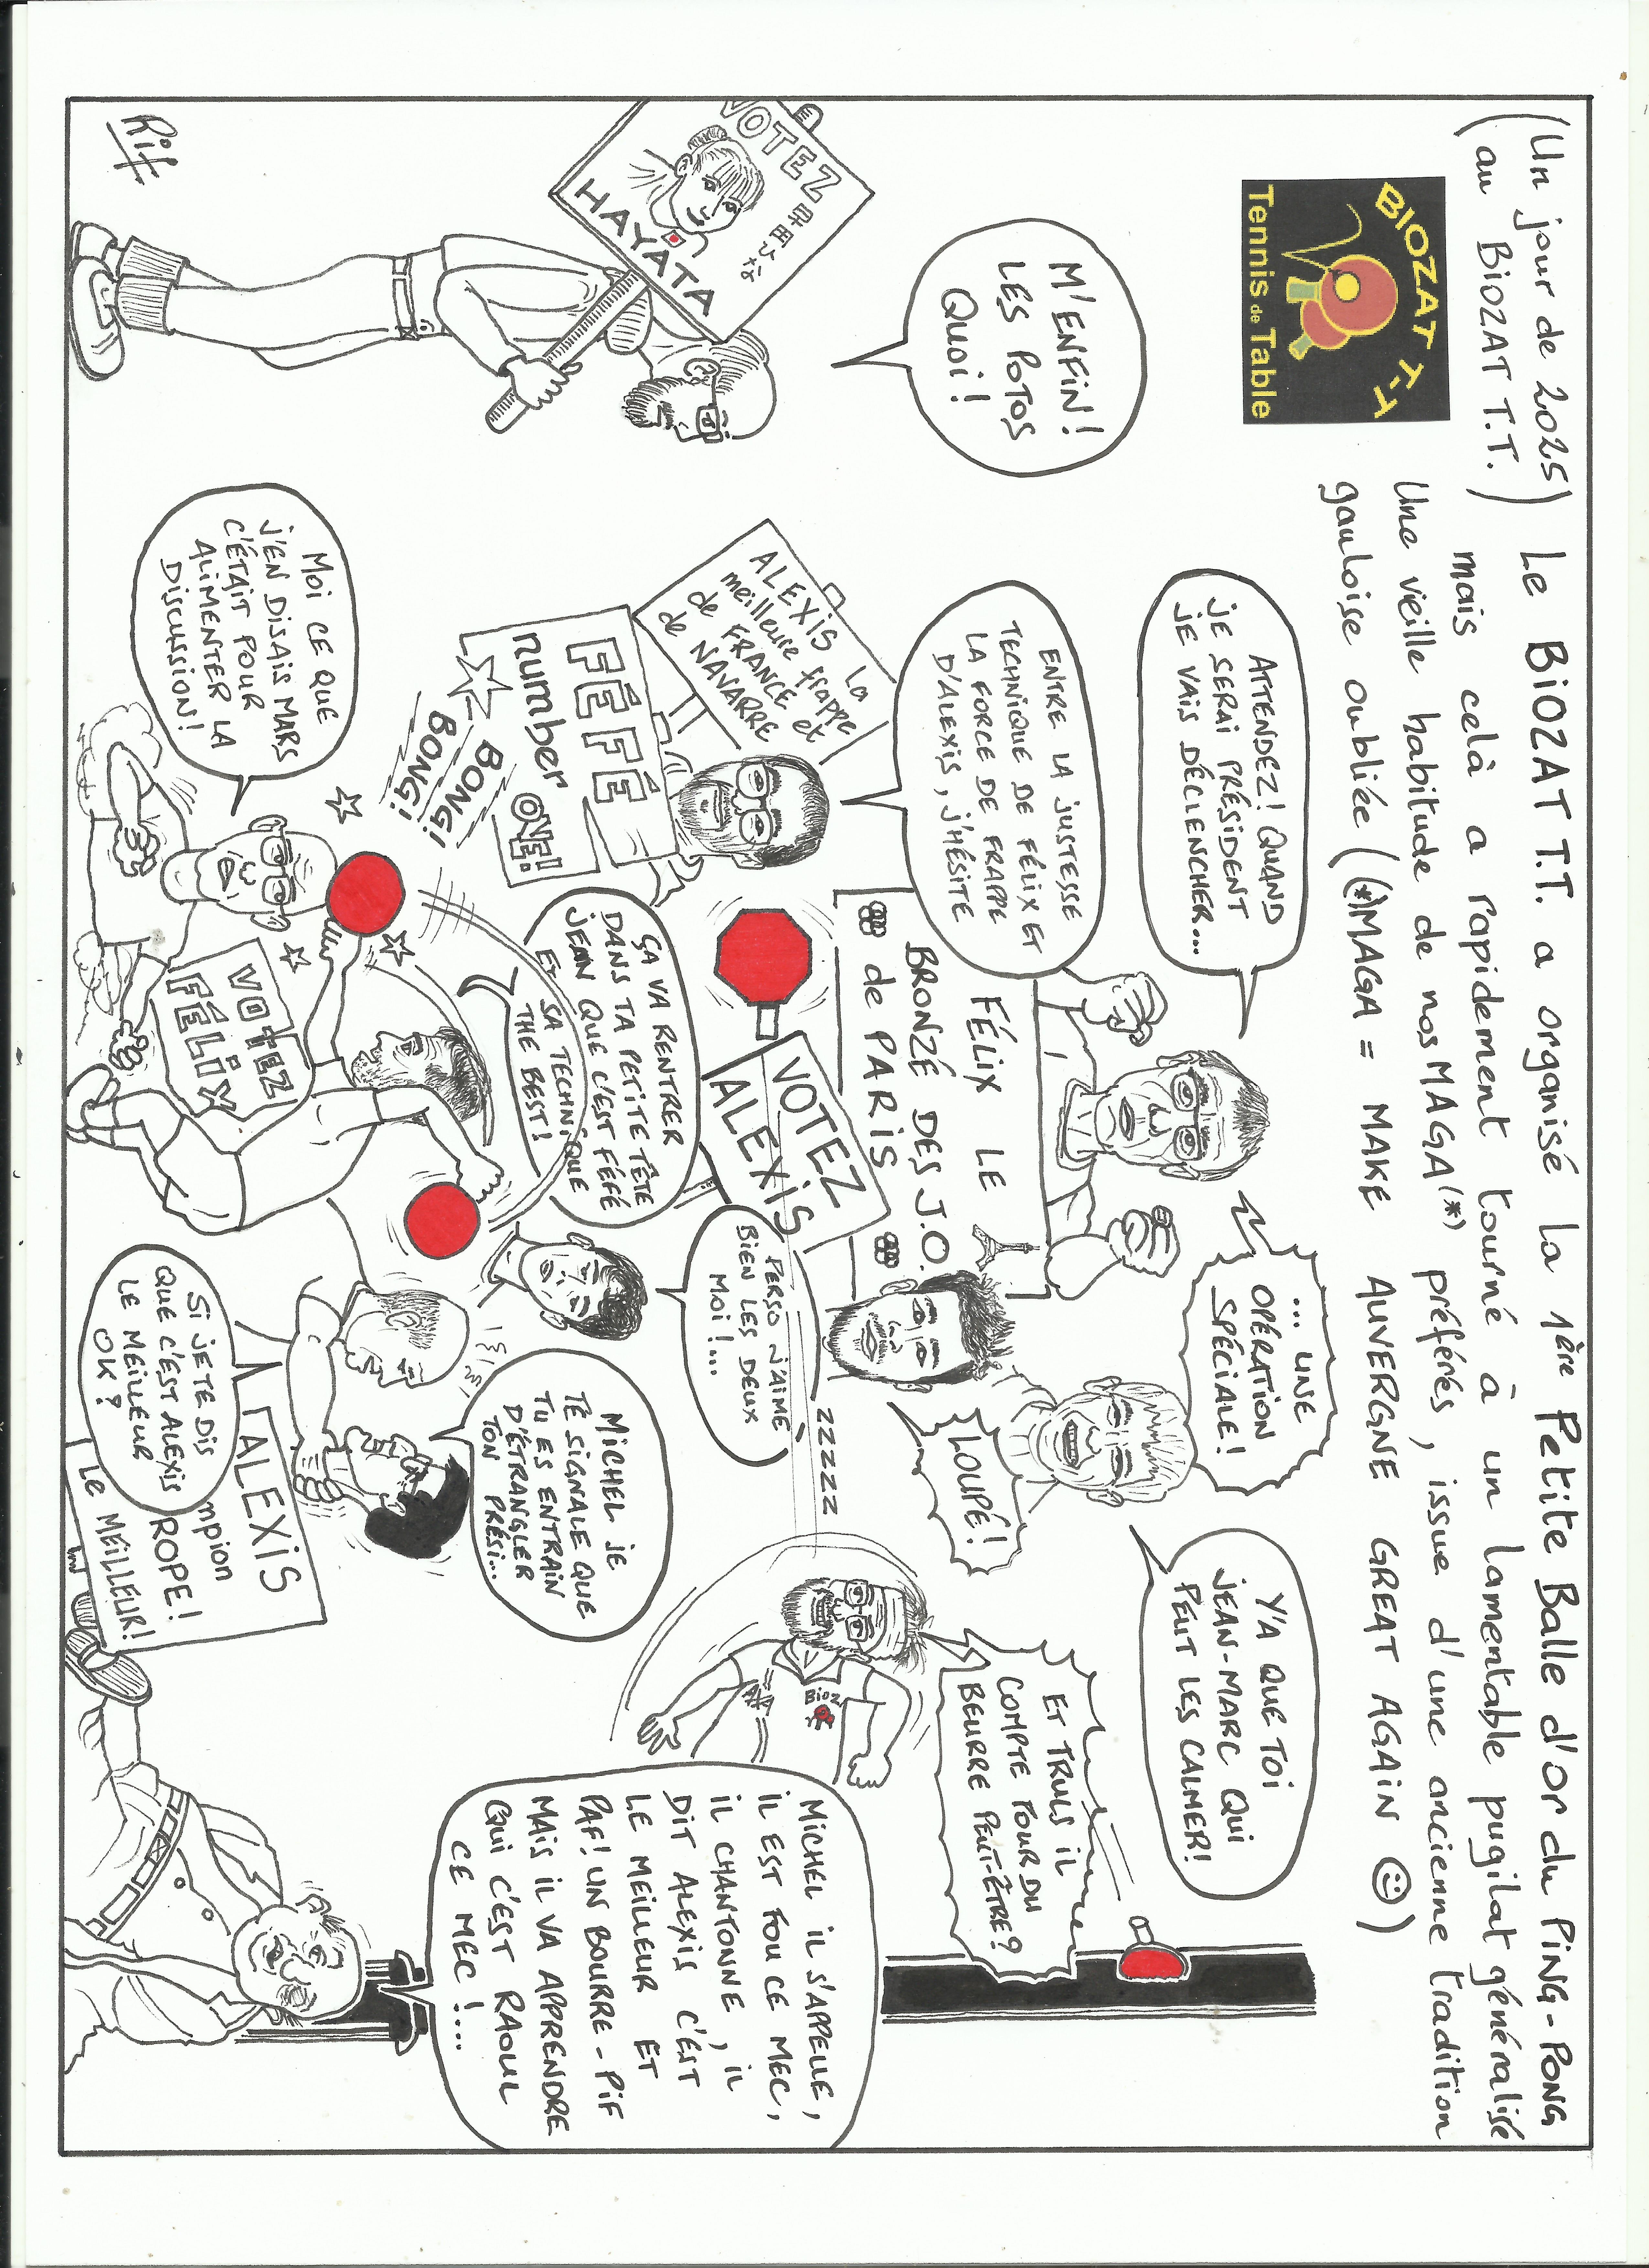 (Un jour de 2025)
(au BIOZAT T.T.)
Le BIOZAT T.T. a organisé la 1ère Petite Balle d'or du PING-PONG
mais celà a rapidement tourné à un lamentable pugilat généralisé
Une vieille habitude de nos MAGA(*) préférés, issue d'une ancienne tradition
gauloise oubliée ((*)MAGA = MAKE AUVERGNE GREAT AGAIN ☺)
BIOZAT T.T
Tennis de Table
M'ENFIN!
LES POTOS
QUOI!
VOTEZ
早田ひな
HAYATA
Rif
ATTENDEZ! QUAND
JE SERAI PRÉSIDENT
JE VAIS DÉCLENCHER...
... UNE
OPÉRATION
SPÉCIALE!
Y'A QUE TOI
JEAN-MARC QUI
PEUT LES CALMER!
ENTRE LA JUSTESSE
TECHNIQUE DE FÉLIX ET
LA FORCE DE FRAPPE
D'ALEXIS, J'HÉSITE
ALEXIS la
meilleure frappe
de FRANCE et
de NAVARRE
FÉFÉ
number
ONE!
FÉLIX LE
BRONZÉ DES J.O.
de PARIS
LOUPÉ!
ET TRULS IL
COMPTE POUR DU
BEURRE PEUT-ÊTRE?
VOTEZ
ALEXIS
ZZZZZ
BIOZ
PERSO J'AIME
BIEN LES DEUX
MOI!...
ÇA VA RENTRER
DANS TA PETITE TÊTE
JEAN QUE C'EST FÉFÉ
ET SA TECHNIQUE
THE BEST!
BONG!
BONG!
MOI CE QUE
J'EN DISAIS MARS
C'ÉTAIT POUR
ALIMENTER LA
DISCUSSION!
VOTEZ
FÉLIX
MICHEL JE
TE SIGNALE QUE
TU ES ENTRAIN
D'ÉTRANGLER
TON PRÉSI...
SI JE TE DIS
QUE C'EST ALEXIS
LE MEILLEUR
OK?
ALEXIS
mpion
ROPE!
LE MEILLEUR!
MICHEL IL S'APPELLE,
IL EST FOU CE MEC,
IL CHANTONNE, IL
DIT ALEXIS C'EST
LE MEILLEUR ET
PAF! UN BOURRE-PIF
MAIS IL VA APPRENDRE
QUI C'EST RAOUL
CE MEC!...